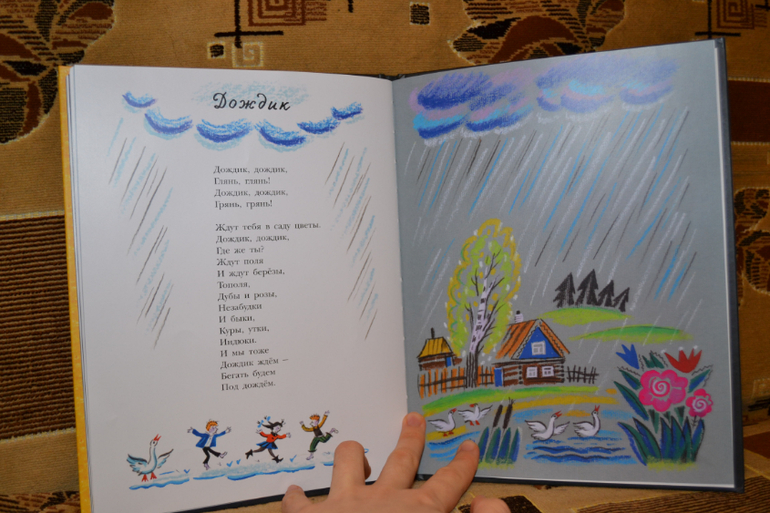 Дождик
Дождик, дождик,
Глянь, глянь!
Дождик, дождик,
Грянь, грянь!
Ждут тебя в саду цветы.
Дождик, дождик,
Где же ты?
Ждут поля
И ждут берёзы,
Тополя,
Дубы и розы,
Незабудки
И быки,
Куры, утки,
Индюки.
И мы тоже
Дождик ждём —
Бегать будем
Под дождём.